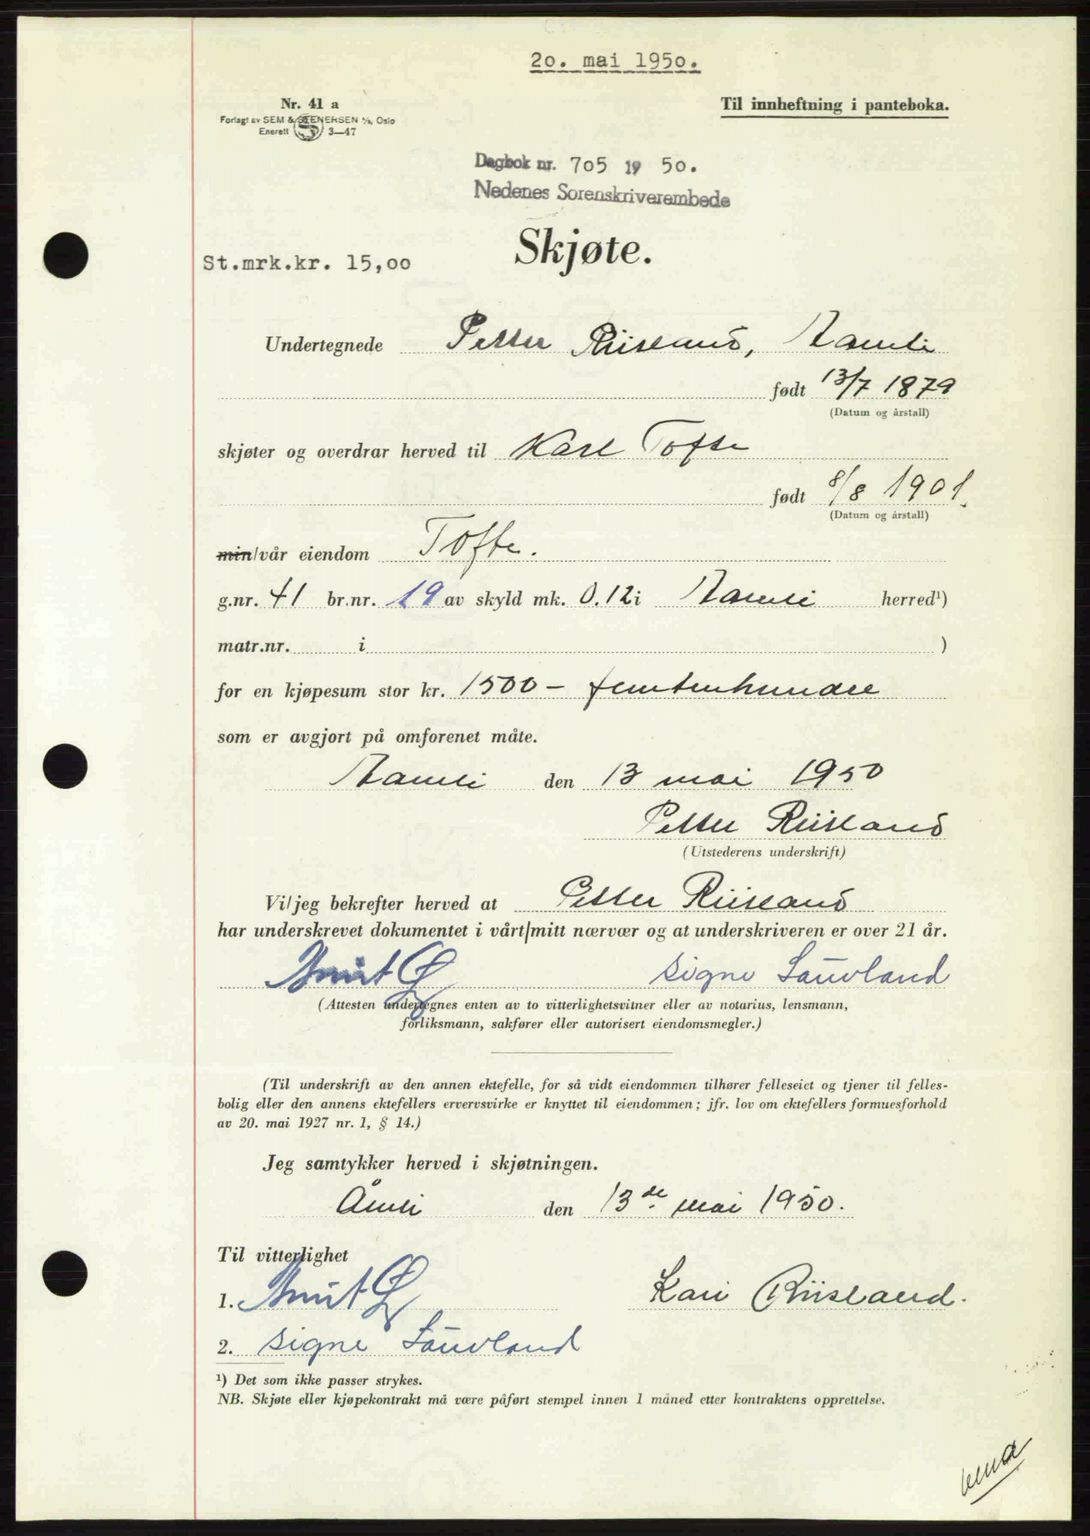 20. mai 1950.
Nr. 41 a
Til innheftning i panteboka.
Forlagt av SEM & STENERSEN A/S, Oslo
Enerett 3—47
Dagbok nr. 705 19 50.
Nedenes Sorenskriverembede
St.mrk.kr. 15,00
Skjøte.
Undertegnede Petter Riisland, Aamli
født 13/7 1879
(Datum og årstall)
skjøter og overdrar herved til Karl Tofte
født 8/8 1901.
(Datum og årstall)
min/vår eiendom Tofte.
g.nr. 41 br.nr. 19 av skyld mk. 0.12 i Aamli herred¹)
matr.nr. i )
for en kjøpesum stor kr. 1500 — femtenhundre
som er avgjort på omforenet måte.
Aamli den 13 mai 1950
Petter Riisland
(Utstederens underskrift)
Vi/jeg bekrefter herved at Petter Riisland
har underskrevet dokumentet i vårt/mitt nærvær og at underskriveren er over 21 år.
Signe Lauvland
(Attesten undertegnes enten av to vitterlighetsvitner eller av notarius, lensmann,
forliksmann, sakfører eller autorisert eiendomsmegler.)
(Til underskrift av den annen ektefelle, for så vidt eiendommen tilhører felleseiet og tjener til felles-
bolig eller den annens ektefellers ervervsvirke er knyttet til eiendommen; jfr. lov om ektefellers formuesforhold
av 20. mai 1927 nr. 1, § 14.)
Jeg samtykker herved i skjøtningen.
Åmli den 13de mai 1950.
Til vitterlighet
1. Kari Riisland.
2. Signe Lauvland
¹) Det som ikke passer strykes.
NB. Skjøte eller kjøpekontrakt må være påført stempel innen 1 måned etter kontraktens opprettelse.